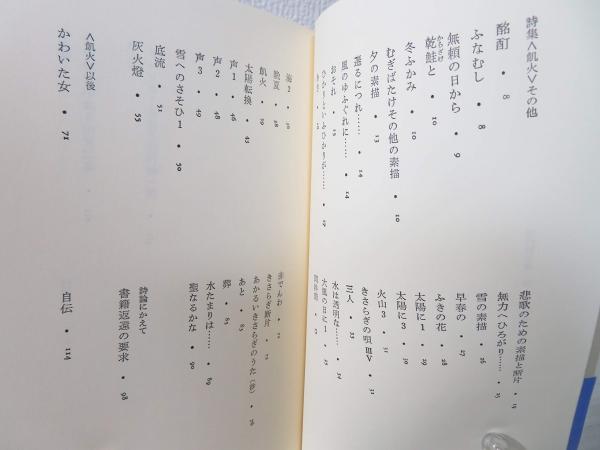 詩集＜飢火＞その他
酩酊・8
ふなむし・8
無頼の日から・9
乾鮭と・10
からざけ
冬ふかみ・10
むぎばたけその他の素描・10
夕の素描・13
還るにつれ……・14
風のゆふぐれに……・14
おそれ
ひかりといふひかりが……
悲歌のための素描と断片
無力へひろがり……
雪の素描・26
早春の・27
ふきの花・28
太陽に1・29
太陽に3・30
火山3・31
きさらぎの唄ⅢⅤ・32
三人・33
水は透明な……・34
大風の日に1
海2
晩夏
飢火・39
太陽転換・43
声1・46
声2・48
声3・49
雪へのさそひ1・50
底流・51
灰火燈・55
＜飢火＞以後
かわいた女・71
赤でんわ
きさらぎ断片
あかるいきさらぎのうた
あと・83
葬・85
水たまりは……・89
聖なるかな・90
詩論にかえて
書籍返還の要求・98
自伝・114